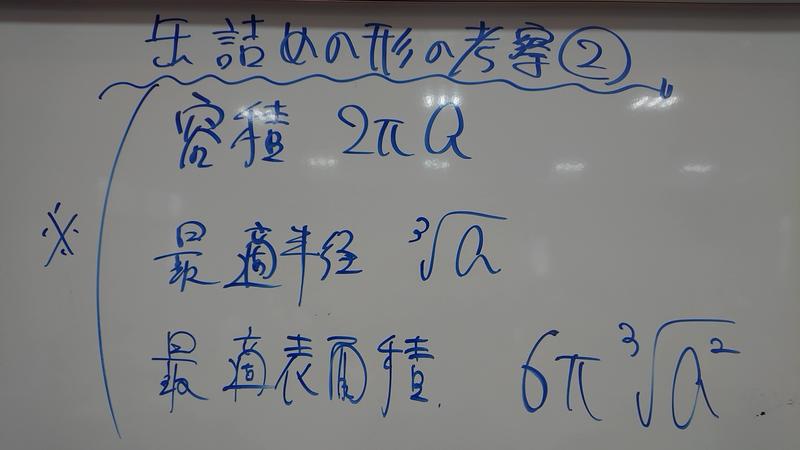 缶詰めの形の考察②
容積 2πa
※
最適半径 ∛a
最適表面積 6π∛a²